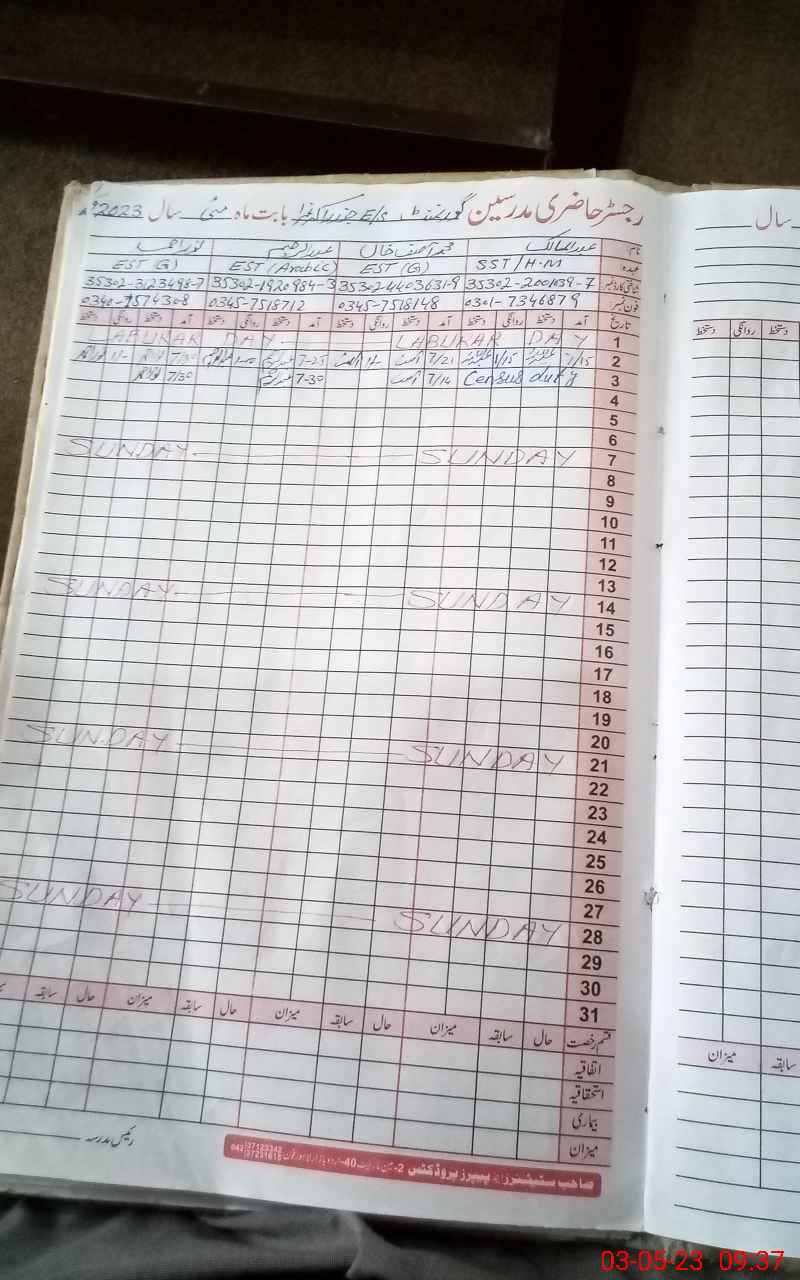 رجسٹر حاضری مدرسین گورنمنٹ E/S بابت ماہ مئی سال 2023
سال
نام عبدالمالک محمد آصف خان عبدالرحیم نور احمد
عہدہ SST/H.M EST (G) EST (Arabic) EST (G)
شناختی کارڈ نمبر 35302-2001039-7 35302-4403631-9 35302-1920984-3 35302-3123498-7
فون نمبر: 0301-7346879 0345-7518148 0345-7518712 0340-7574308
تاریخ آمد دستخط روانگی دستخط آمد دستخط روانگی دستخط آمد دستخط روانگی دستخط آمد دستخط روانگی دستخط
دستخط روانگی دستخط
1 LABUKAR DAY LABUKAR DAY
2 7/15 1/15 7/21 7-25 7/30
3 Census duty 7/14 7-30 7/30
4
5
6
7 SUNDAY SUNDAY
8
9
10
11
12
13
14 SUNDAY SUNDAY
15
16
17
18
19
20
21 SUNDAY SUNDAY
22
23
24
25
26
27
28 SUNDAY SUNDAY
29
30
31
قسم رخصت حال سابقہ میزان حال سابقہ میزان حال سابقہ میزان حال سابقہ
میزان سابقہ
اتفاقیہ
استحقاقیہ
بیماری
میزان
رئیس مدرسہ
صاحب سٹیشنرز اینڈ پیپرز پروڈکٹس
03-05-23 09:37